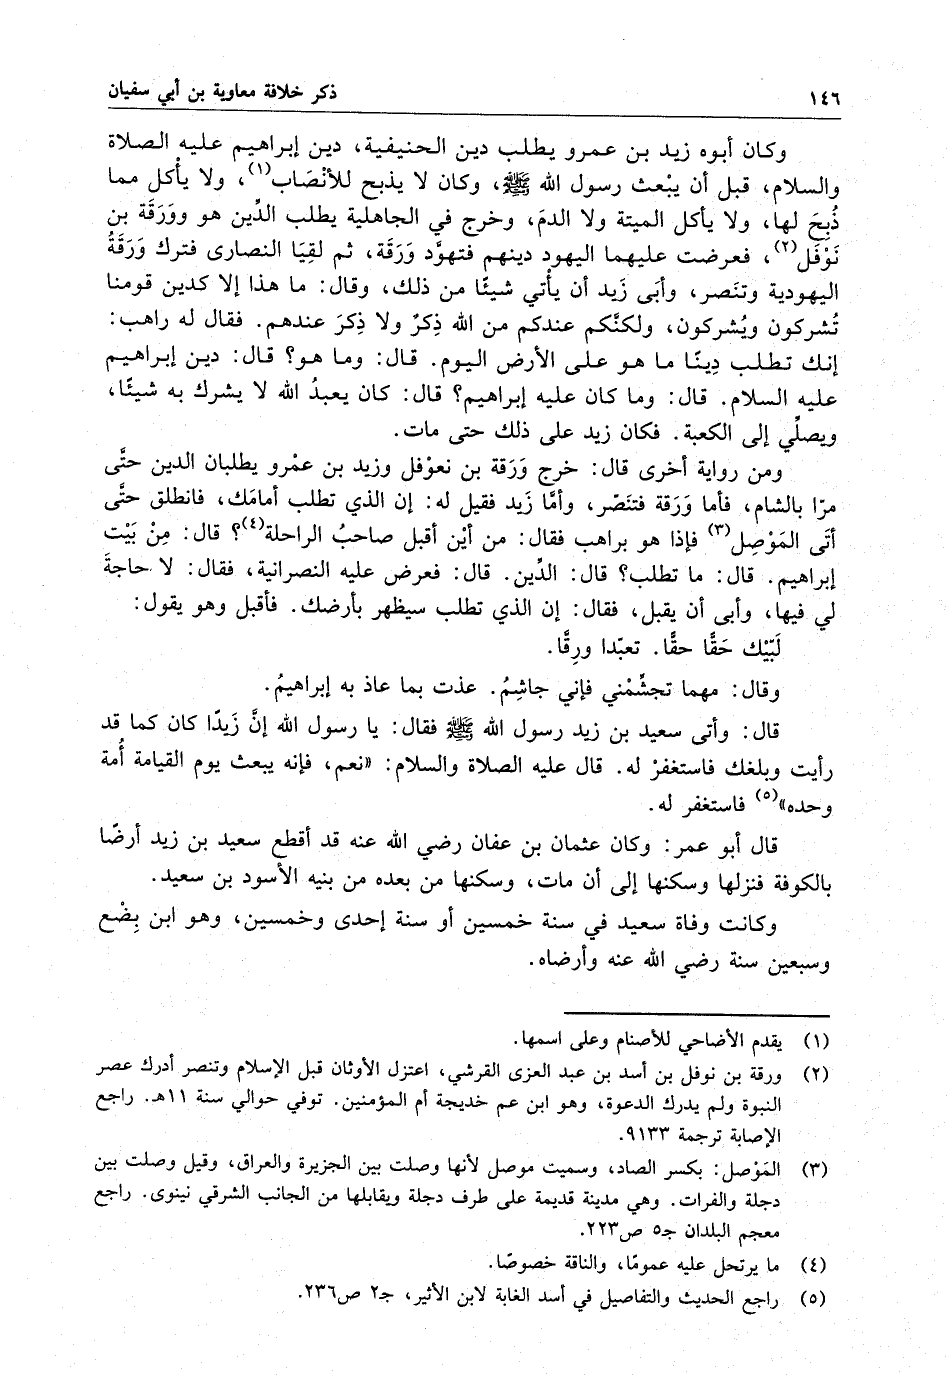 ١٤٦
ذكر خلافة معاوية بن أبي سفيان
وكان أبوه زيد بن عمرو يطلب دين الحنيفية، دين إبراهيم عليه الصلاة
والسلام، قبل أن يبْعث رسول الله ﷺ، وكان لا يذبح للأنْصَاب(١)، ولا يأكل مما
ذُبِحَ لها، ولا يأكل الميتة ولا الدمَ، وخرج في الجاهلية يطلب الدِّين هو ووَرَقَة بن
نَوْفَل(٢)، فعرضت عليهما اليهود دينهم فتهوَّد وَرَقَة، ثم لقِيَا النصارى فترك وَرَقَةُ
اليهودية وتنَصر، وأبَى زَيد أن يأتي شيئًا من ذلك، وقال: ما هذا إلا كدين قومنا
تُشركون ويُشركون، ولكنَّكم عندكم من الله ذِكرٌ ولا ذِكرَ عندهم. فقال له راهب:
إنك تطلب دِينًا ما هو على الأرض اليوم. قال: وما هو؟ قال: دين إبراهيم
عليه السلام. قال: وما كان عليه إبراهيم؟ قال: كان يعبدُ الله لا يشرك به شيئًا،
ويصلِّي إلى الكعبة. فكان زيد على ذلك حتى مات.
ومن رواية أخرى قال: خرج وَرَقة بن نعوْفل وزيد بن عمْرو يطلبان الدين حتَّى
مرّا بالشام، فأما وَرَقة فتنَصّر، وأمَّا زَيد فقيل له: إن الذي تطلب أمامَك، فانطلق حتَّى
أتَى المَوْصِل(٣) فإذا هو براهب فقال: من أيْن أقبل صاحبُ الراحلة(٤)؟ قال: مِنْ بَيْت
إبراهيم. قال: ما تطلب؟ قال: الدِّين. قال: فعرض عليه النصرانية، فقال: لا حاجةَ
لي فيها، وأبى أن يقبل، فقال: إن الذي تطلب سيظهر بأرضك. فأقبل وهو يقول:
لَبّيْك حَقًّا حقًّا. تعبّدا ورِقًّا.
وقال: مهما تجشِّمْني فإني جاشِمُ. عذت بما عاذ به إبراهيمُ.
قال: وأتى سعيد بن زيد رسول الله ﷺ فقال: يا رسول الله إنَّ زَيدًا كان كما قد
رأيت وبلغك فاستغفرْ له. قال عليه الصلاة والسلام: «نعم، فإنه يبعث يوم القيامة أُمة
وحده»(٥) فاستغفر له.
قال أبو عمر: وكان عثمان بن عفان رضي الله عنه قد أقطع سعيد بن زيد أرضًا
بالكوفة فنزلها وسكنها إلى أن مات، وسكنها من بعده من بنيه الأسود بن سعيد.
وكانت وفاة سعيد في سنة خمسين أو سنة إحدى وخمسين، وهو ابن بِضْع
وسبعين سنة رضي الله عنه وأرضاه.
(١) يقدم الأضاحي للأصنام وعلى اسمها.
(٢) ورقة بن نوفل بن أسد بن عبد العزى القرشي، اعتزل الأوثان قبل الإسلام وتنصر أدرك عصر
النبوة ولم يدرك الدعوة، وهو ابن عم خديجة أم المؤمنين. توفي حوالي سنة ١١هـ. راجع
الإصابة ترجمة ٩١٣٣.
(٣) المَوْصل: بكسر الصاد، وسميت موصل لأنها وصلت بين الجزيرة والعراق، وقيل وصلت بين
دجلة والفرات. وهي مدينة قديمة على طرف دجلة ويقابلها من الجانب الشرقي نينوى. راجع
معجم البلدان جـ٥ ص٢٢٣.
(٤) ما يرتحل عليه عمومًا، والناقة خصوصًا.
(٥) راجع الحديث والتفاصيل في أسد الغابة لابن الأثير، جـ٢ ص٢٣٦.